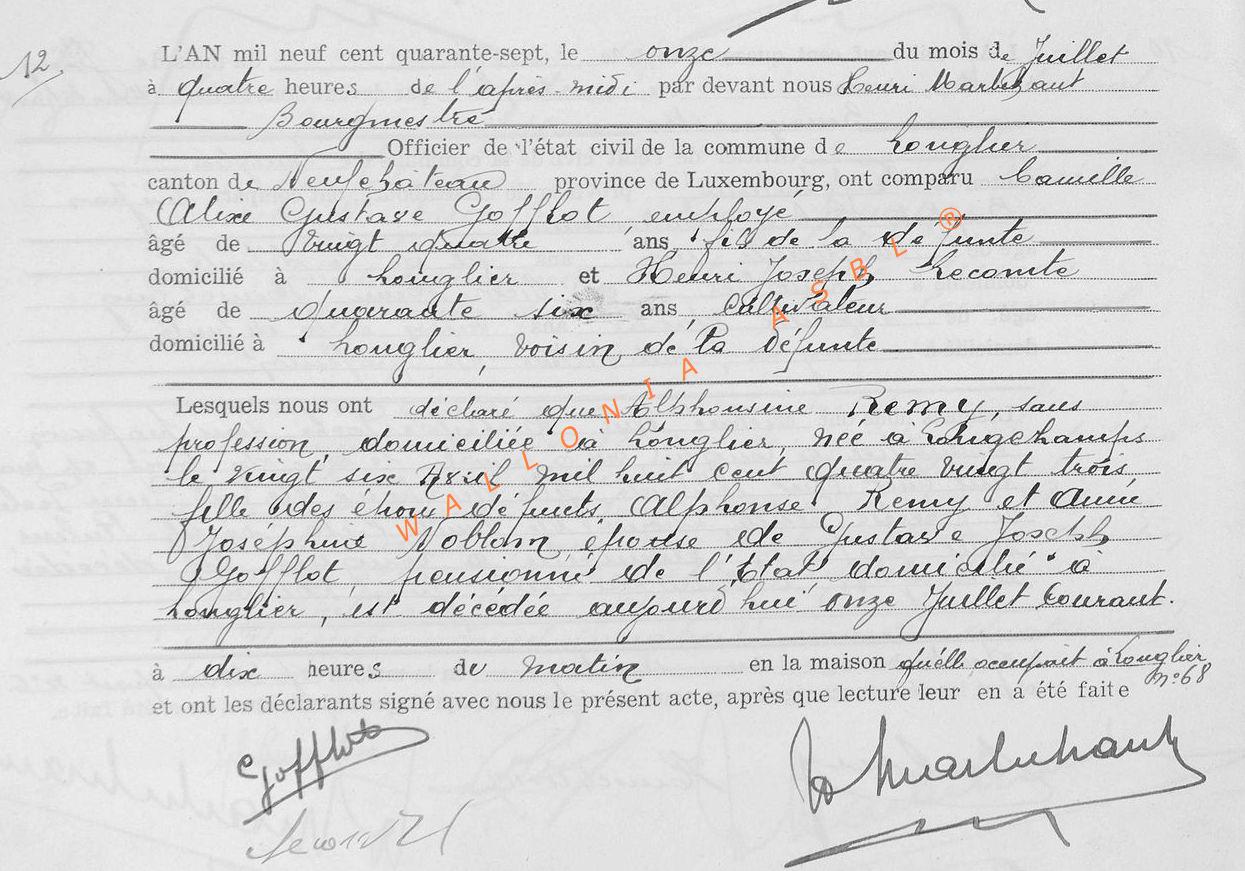 12
L'AN mil neuf cent quarante-sept, le onze du mois de Juillet
à quatre heures de l'après-midi par devant nous Henri
Bourgmestre
Officier de l'état civil de la commune de Longlier
canton de Neufchâteau province de Luxembourg, ont comparu Camille
Alix Gustave Gofflot employé
âgé de Vingt quatre ans fils de la défunte
domicilié à Longlier et Henri Joseph Lecomte
âgé de quarante six ans cultivateur
domicilié à Longlier, voisin de la défunte
Lesquels nous ont déclaré que Alphonsine Remy, sans
profession, domiciliée à Longlier, née à Longchamps
le vingt six Avril mil huit cent quatre vingt trois
fille des époux défunts Alphonse Remy et Anne
Joséphine épouse de Gustave Joseph
Gofflot pensionné de l'Etat domicilié à
Longlier, est décédée aujourd'hui onze Juillet courant.
à dix heures du matin en la maison qu'elle occupait à Longlier
n° 68
et ont les déclarants signé avec nous le présent acte, après que lecture leur en a été faite
Gofflot
WALLONIA ASBL ®